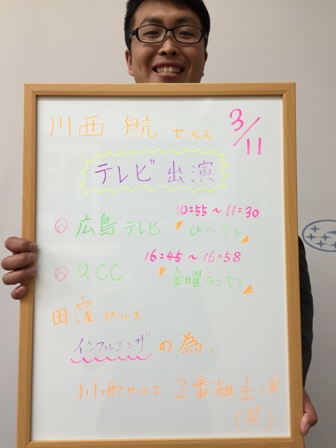 川西 航 セールス 3/11
テレビ出演
10:55～11:30
◎広島テレビ『ひ～テレ』
16:45～16:58
◎RCC『金曜ランキン』
田窪セールス
インフルエンザの為、
川西セールス 2番組出演
(笑)